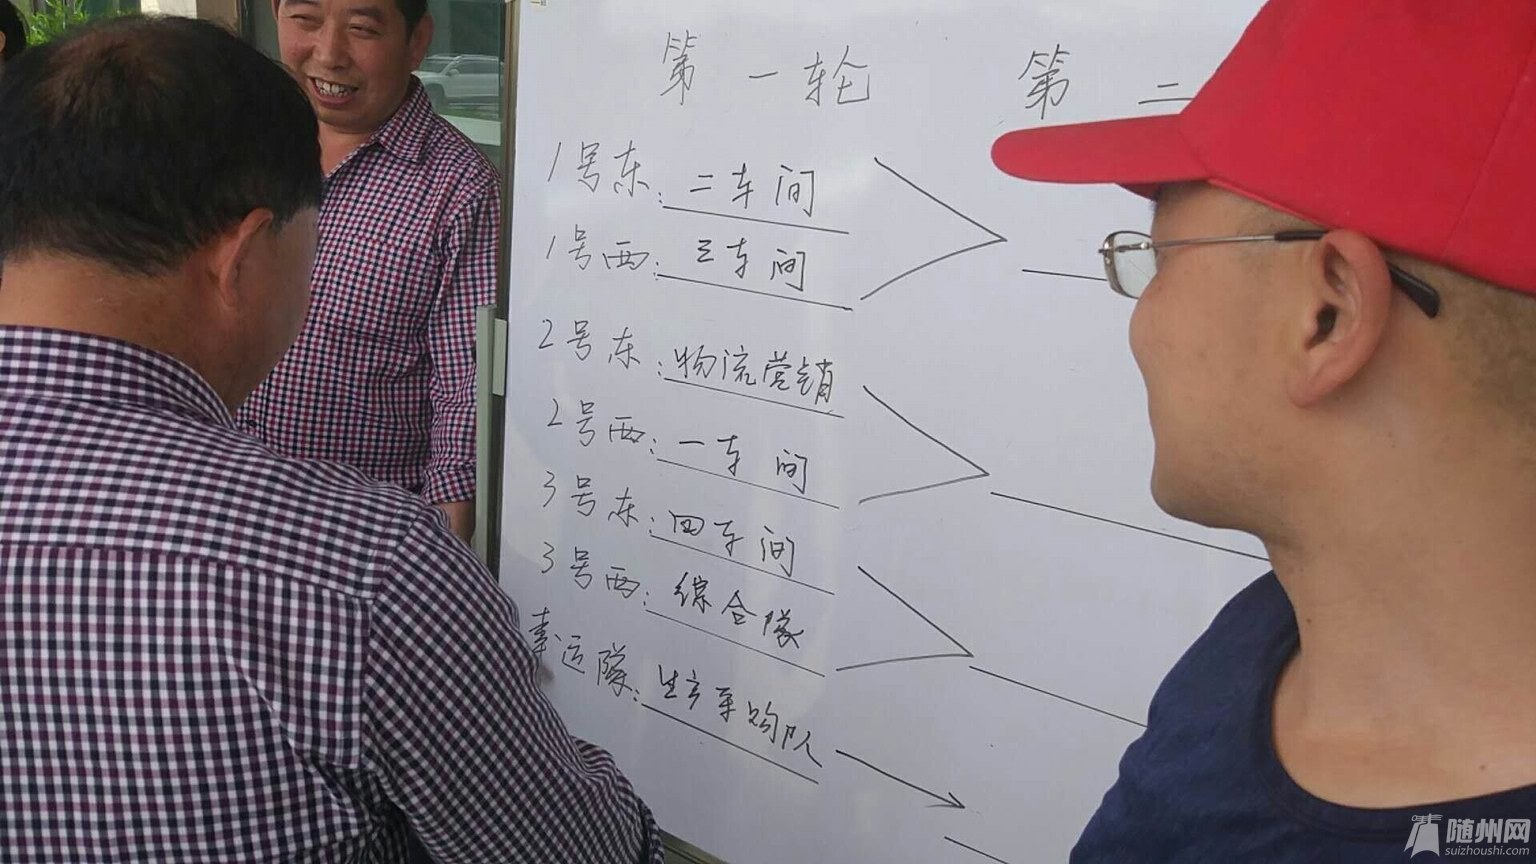 第一轮 第二
1号东：二车间
1号西：三车间
2号东：物流营销
2号西：一车间
3号东：四车间
3号西：综合隊
幸运隊：生产采购队
随州网
suizhoushi.com